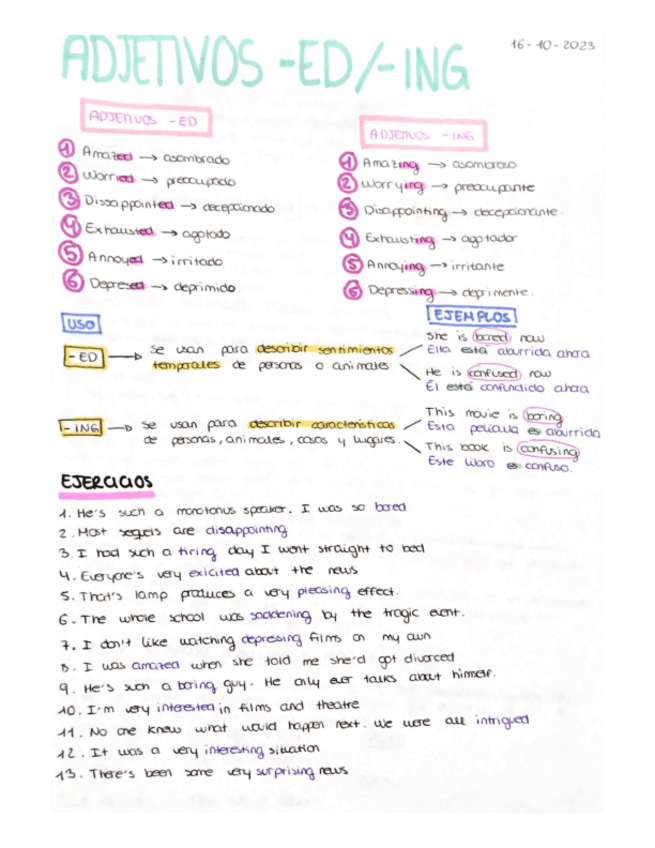 ADJETIVOS -ED/-ING
16-10-2023
ADJETIVOS -ED
1 Amazed → asombrado
2 Worried → preocupado
3 Dissappointed → decepcionado
4 Exhausted → agotado
5 Annoyed → irritado
6 Depresed → deprimido.
ADJETIVOS -ING
1 Amazing → asombroso
2 Worrying → preocupante
3 Disappointing → decepcionante.
4 Exhausting → agotador
5 Annoying → irritante
6 Depressing → deprimente.
USO
-ED → Se usan para describir sentimientos
temporales de personas o animales
-ING → Se usan para describir características
de personas, animales, cosas y lugares.
EJEMPLOS
She is bored now
Ella está aburrida ahora
He is confused now
Él está confundido ahora
This movie is boring
Esta película es aburrida
This book is confusing
Este libro es confuso.
EJERCICIOS
1. He's such a monotonus speaker. I was so bored
2. Most are disappointing
3. I had such a tiring day I went straight to bed
4. Everyone's very exicited about the news
5. That's lamp produces a very pleasing effect.
6. The whole school was saddening by the tragic event.
7. I don't like watching depresing films on my own
8. I was amazed when she told me she'd got divorced
9. He's such a boring guy. He only ever talks about himself.
10. I'm very interested in films and theatre
11. No one knew what would happen next. We were all intrigued
12. It was a very interesting situation
13. There's been some very surprising news